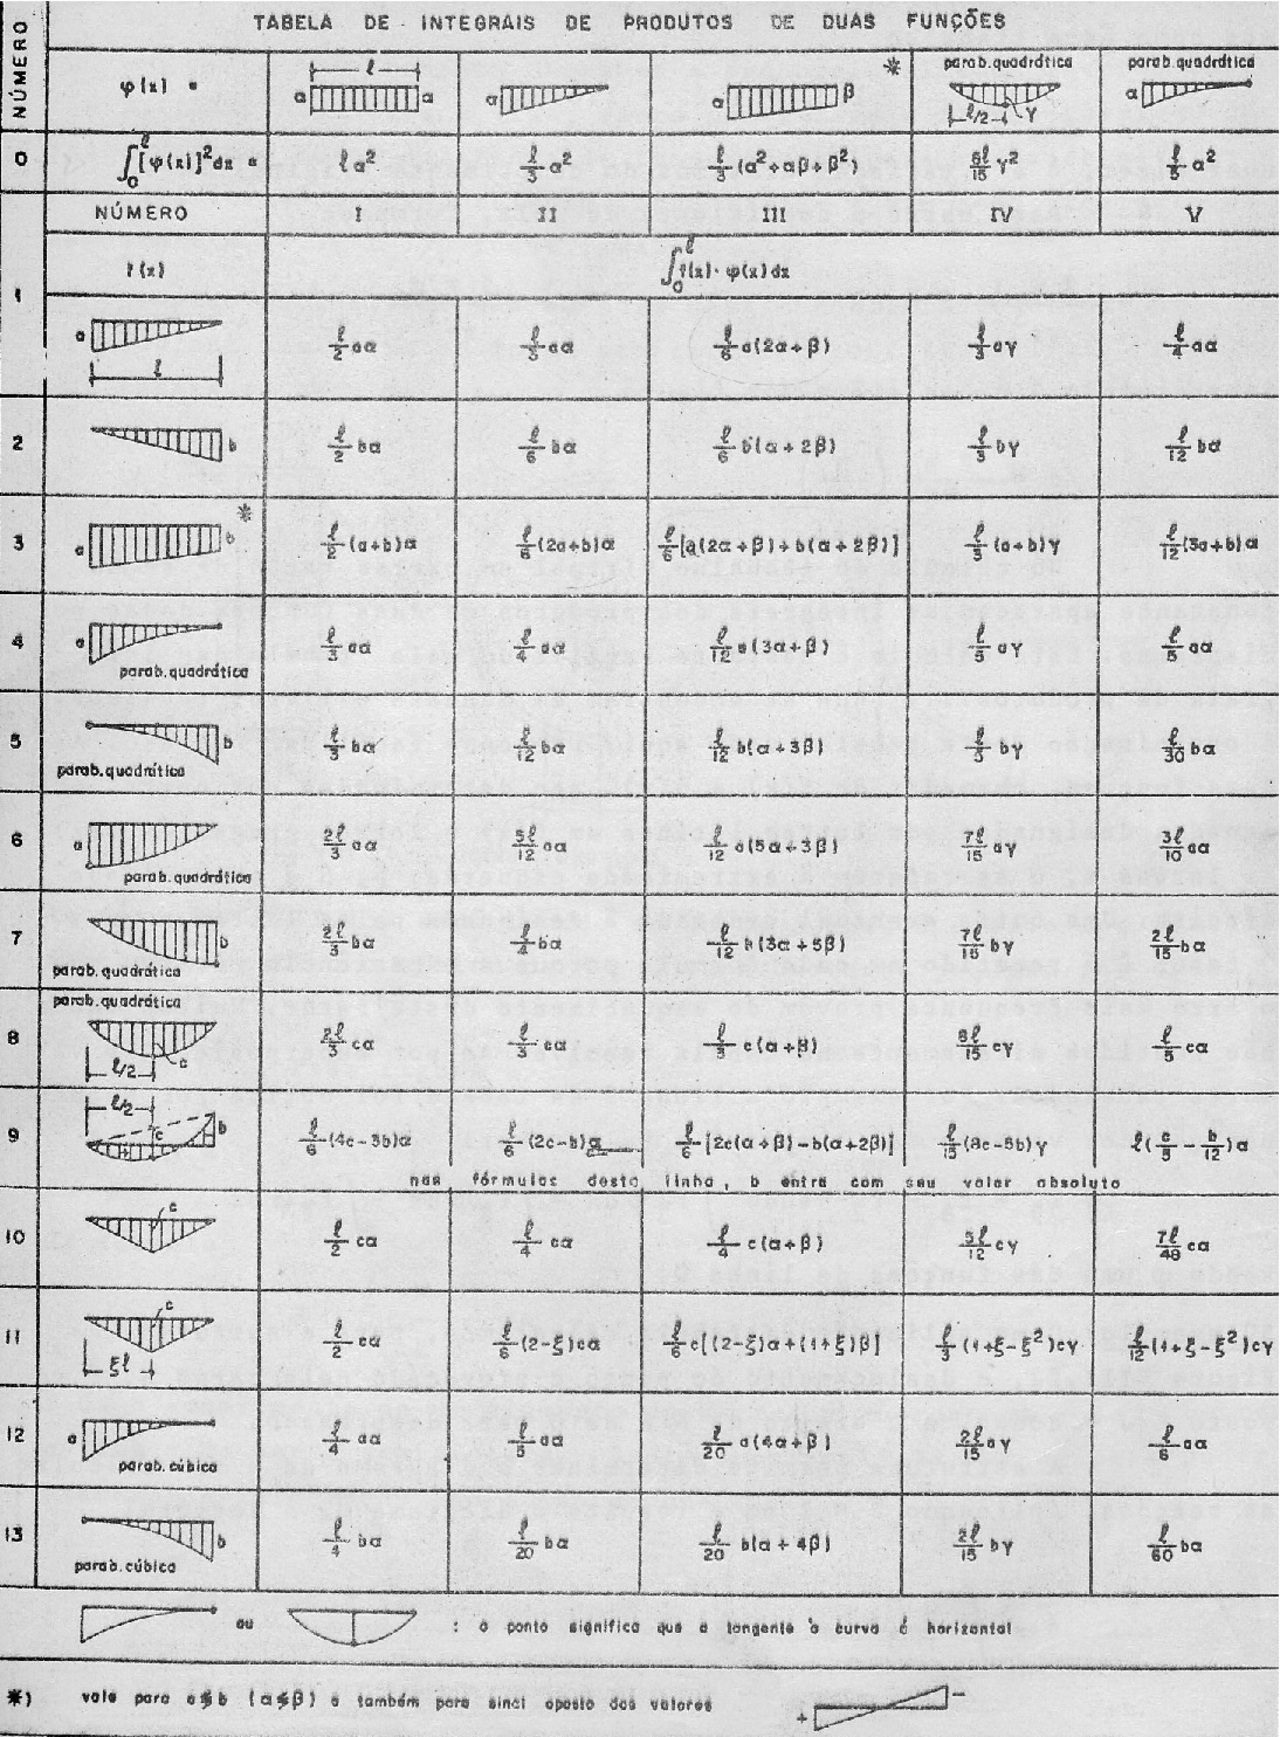 TABELA DE INTEGRAIS DE PRODUTOS DE DUAS FUNÇÕES
NÚMERO
φ(x) =
ℓ
α α
α
α β *
parab.quadrática
ℓ/2 γ
parab.quadrática
α
0 ∫₀^ℓ[φ(x)]²dx = ℓα² ℓ/3 α² ℓ/3 (α²+αβ+β²) 8ℓ/15 γ² ℓ/5 α²
NÚMERO I II III IV V
f(x) ∫₀^ℓ f(x)·φ(x)dx
1 a ℓ ℓ/2 aα ℓ/3 aα ℓ/6 a(2α+β) ℓ/3 aγ ℓ/4 aα
2 b ℓ/2 bα ℓ/6 bα ℓ/6 b(α+2β) ℓ/3 bγ ℓ/12 bα
3 a b * ℓ/2 (a+b)α ℓ/6 (2a+b)α ℓ/6 [a(2α+β)+b(α+2β)] ℓ/3 (a+b)γ ℓ/12 (3a+b)α
4 a parab.quadrática ℓ/3 aα ℓ/4 aα ℓ/12 a(3α+β) ℓ/5 aγ ℓ/5 aα
5 b parab.quadrática ℓ/3 bα ℓ/12 bα ℓ/12 b(α+3β) ℓ/5 bγ ℓ/30 bα
6 a parab.quadrática 2ℓ/3 aα 5ℓ/12 aα ℓ/12 a(5α+3β) 7ℓ/15 aγ 3ℓ/10 aα
7 b parab.quadrática 2ℓ/3 bα ℓ/4 bα ℓ/12 b(3α+5β) 7ℓ/15 bγ 2ℓ/15 bα
parab.quadrática
8 ℓ/2 c 2ℓ/3 cα ℓ/3 cα ℓ/3 c(α+β) 8ℓ/15 cγ ℓ/5 cα
9 ℓ/2 c b ℓ/6 (4c-3b)α ℓ/6 (2c-b)α ℓ/6 [2c(α+β)-b(α+2β)] ℓ/15 (8c-5b)γ ℓ(c/5 - b/12)α
nas fórmulas desta linha, b entra com seu valor absoluto
10 c ℓ/2 cα ℓ/4 cα ℓ/4 c(α+β) 5ℓ/12 cγ 7ℓ/48 cα
11 c ξℓ ℓ/2 cα ℓ/6 (2-ξ)cα ℓ/6 c[(2-ξ)α+(1+ξ)β] ℓ/3 (1+ξ-ξ²)cγ ℓ/12 (1+ξ-ξ²)cγ
12 a parab.cúbica ℓ/4 aα ℓ/5 aα ℓ/20 a(4α+β) 2ℓ/15 aγ ℓ/6 aα
13 b parab.cúbica ℓ/4 bα ℓ/20 bα ℓ/20 b(α+4β) 2ℓ/15 bγ ℓ/60 bα
ou : o ponto significa que a tangente à curva é horizontal
*) vale para a≶b (α≶β) e também para sinal oposto dos valores + -